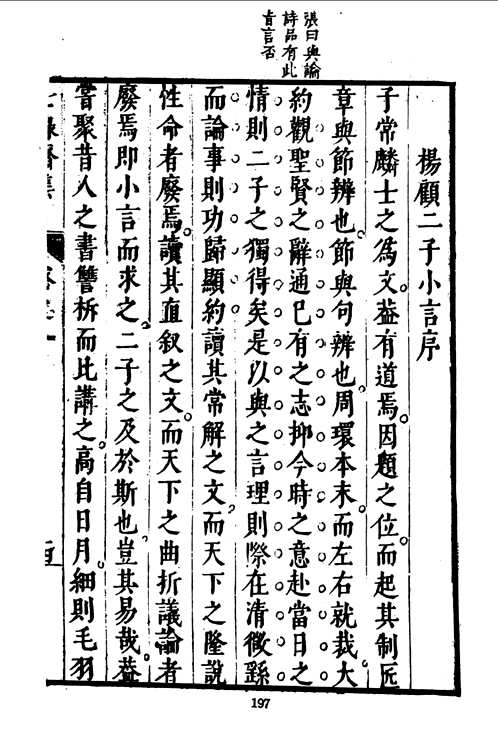 張曰與論
詩品有此
肯言否
楊顧二子小言序
子常麟士之為文。葢有道焉。因題之位。而起其制。匠
章與節辨也。節與句辨也。周環本末。而左右就裁。大
約觀聖賢之辭。通已有之志。抑今時之意。赴當日之
情。則二子之獨得矣。是以與之言理。則際在清微。繇
而論事。則功歸顯約。讀其常解之文。而天下之隆說
性命者廢焉。讀其直叙之文。而天下之曲折議論者
廢焉。即小言而求之。二子之及於斯也。豈其易哉。葢
嘗聚昔人之書。讐析而比講之。高自日月。細則毛羽
197